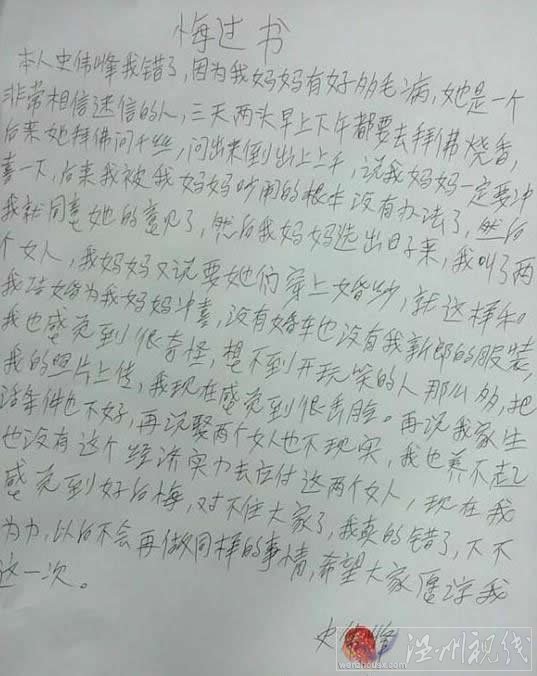 悔过书
本人史伟峰我错了,因为我妈妈有好多毛病,她是一个
非常相信迷信的人,三天两头早上下午都要去拜佛烧香,
后来她拜佛问千丝,问出来倒出上上千,说我妈妈一定要冲
喜一下,后来我被我妈妈吵闹的根本没有办法了,然后
我就同意她的意见了,然后我妈妈选出日子来,我叫了两
个女人,我妈妈又说要她们穿上婚纱,就这样和
我结婚为我妈妈冲喜,没有婚车也没有我新郎的服装,
我也感觉到很奇怪,想不到开玩笑的人那么多,把
我的照片上传,我现在感觉到很丢脸。再说我家生
活条件也不好,再说娶两个女人也不现实,我也养不起
也没有这个经济实力去应付这两个女人,现在我
感觉到好后悔,对不住大家了,我真的错了,下不
为力,以后不会再做同样的事情,希望大家原谅我
这一次。
史伟峰
温州视线
wenzhousx.com